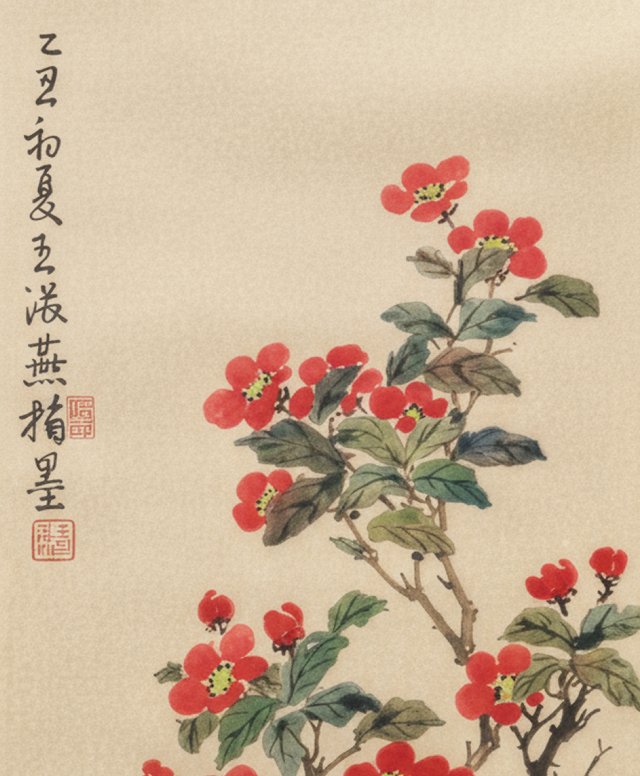 乙丑初夏王淑燕指墨